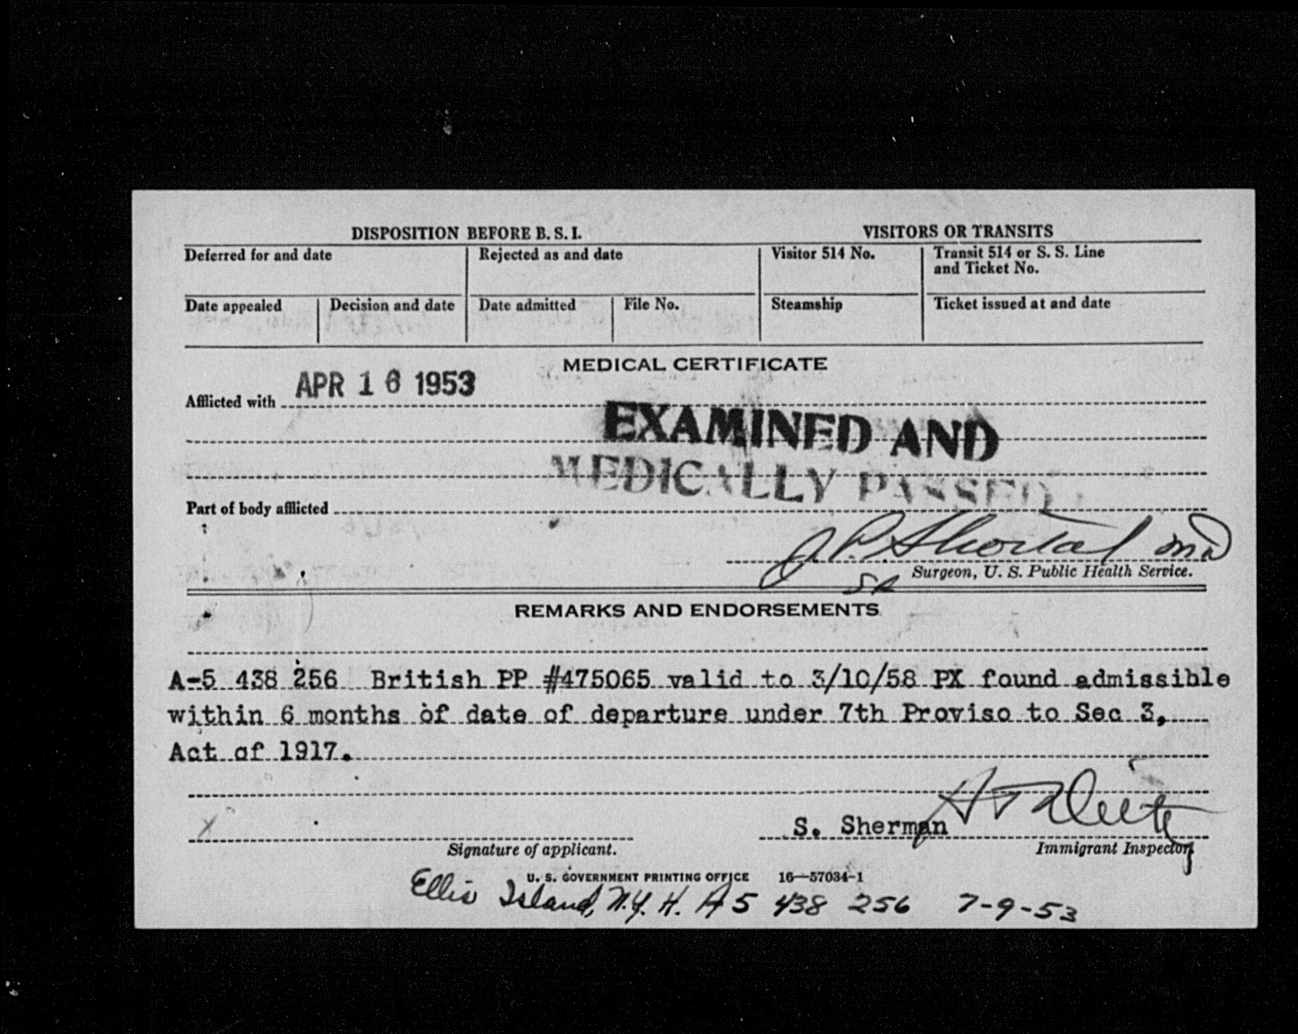 DISPOSITION BEFORE B. S. I. VISITORS OR TRANSITS
Deferred for and date Rejected as and date Visitor 514 No. Transit 514 or S. S. Line
and Ticket No.
Date appealed Decision and date Date admitted File No. Steamship Ticket issued at and date
MEDICAL CERTIFICATE
APR 16 1953
Afflicted with
EXAMINED AND
MEDICALLY PASSED
Part of body afflicted
Surgeon, U. S. Public Health Service.
REMARKS AND ENDORSEMENTS
A-5 438 256 British PP #475065 valid to 3/10/58 PX found admissible
within 6 months of date of departure under 7th Proviso to Sec 3,
Act of 1917.
X
S. Sherman
Signature of applicant. Immigrant Inspector
U. S. GOVERNMENT PRINTING OFFICE 16—57034-1
Ellis Island, N.Y. H. A5 438 256 7-9-53